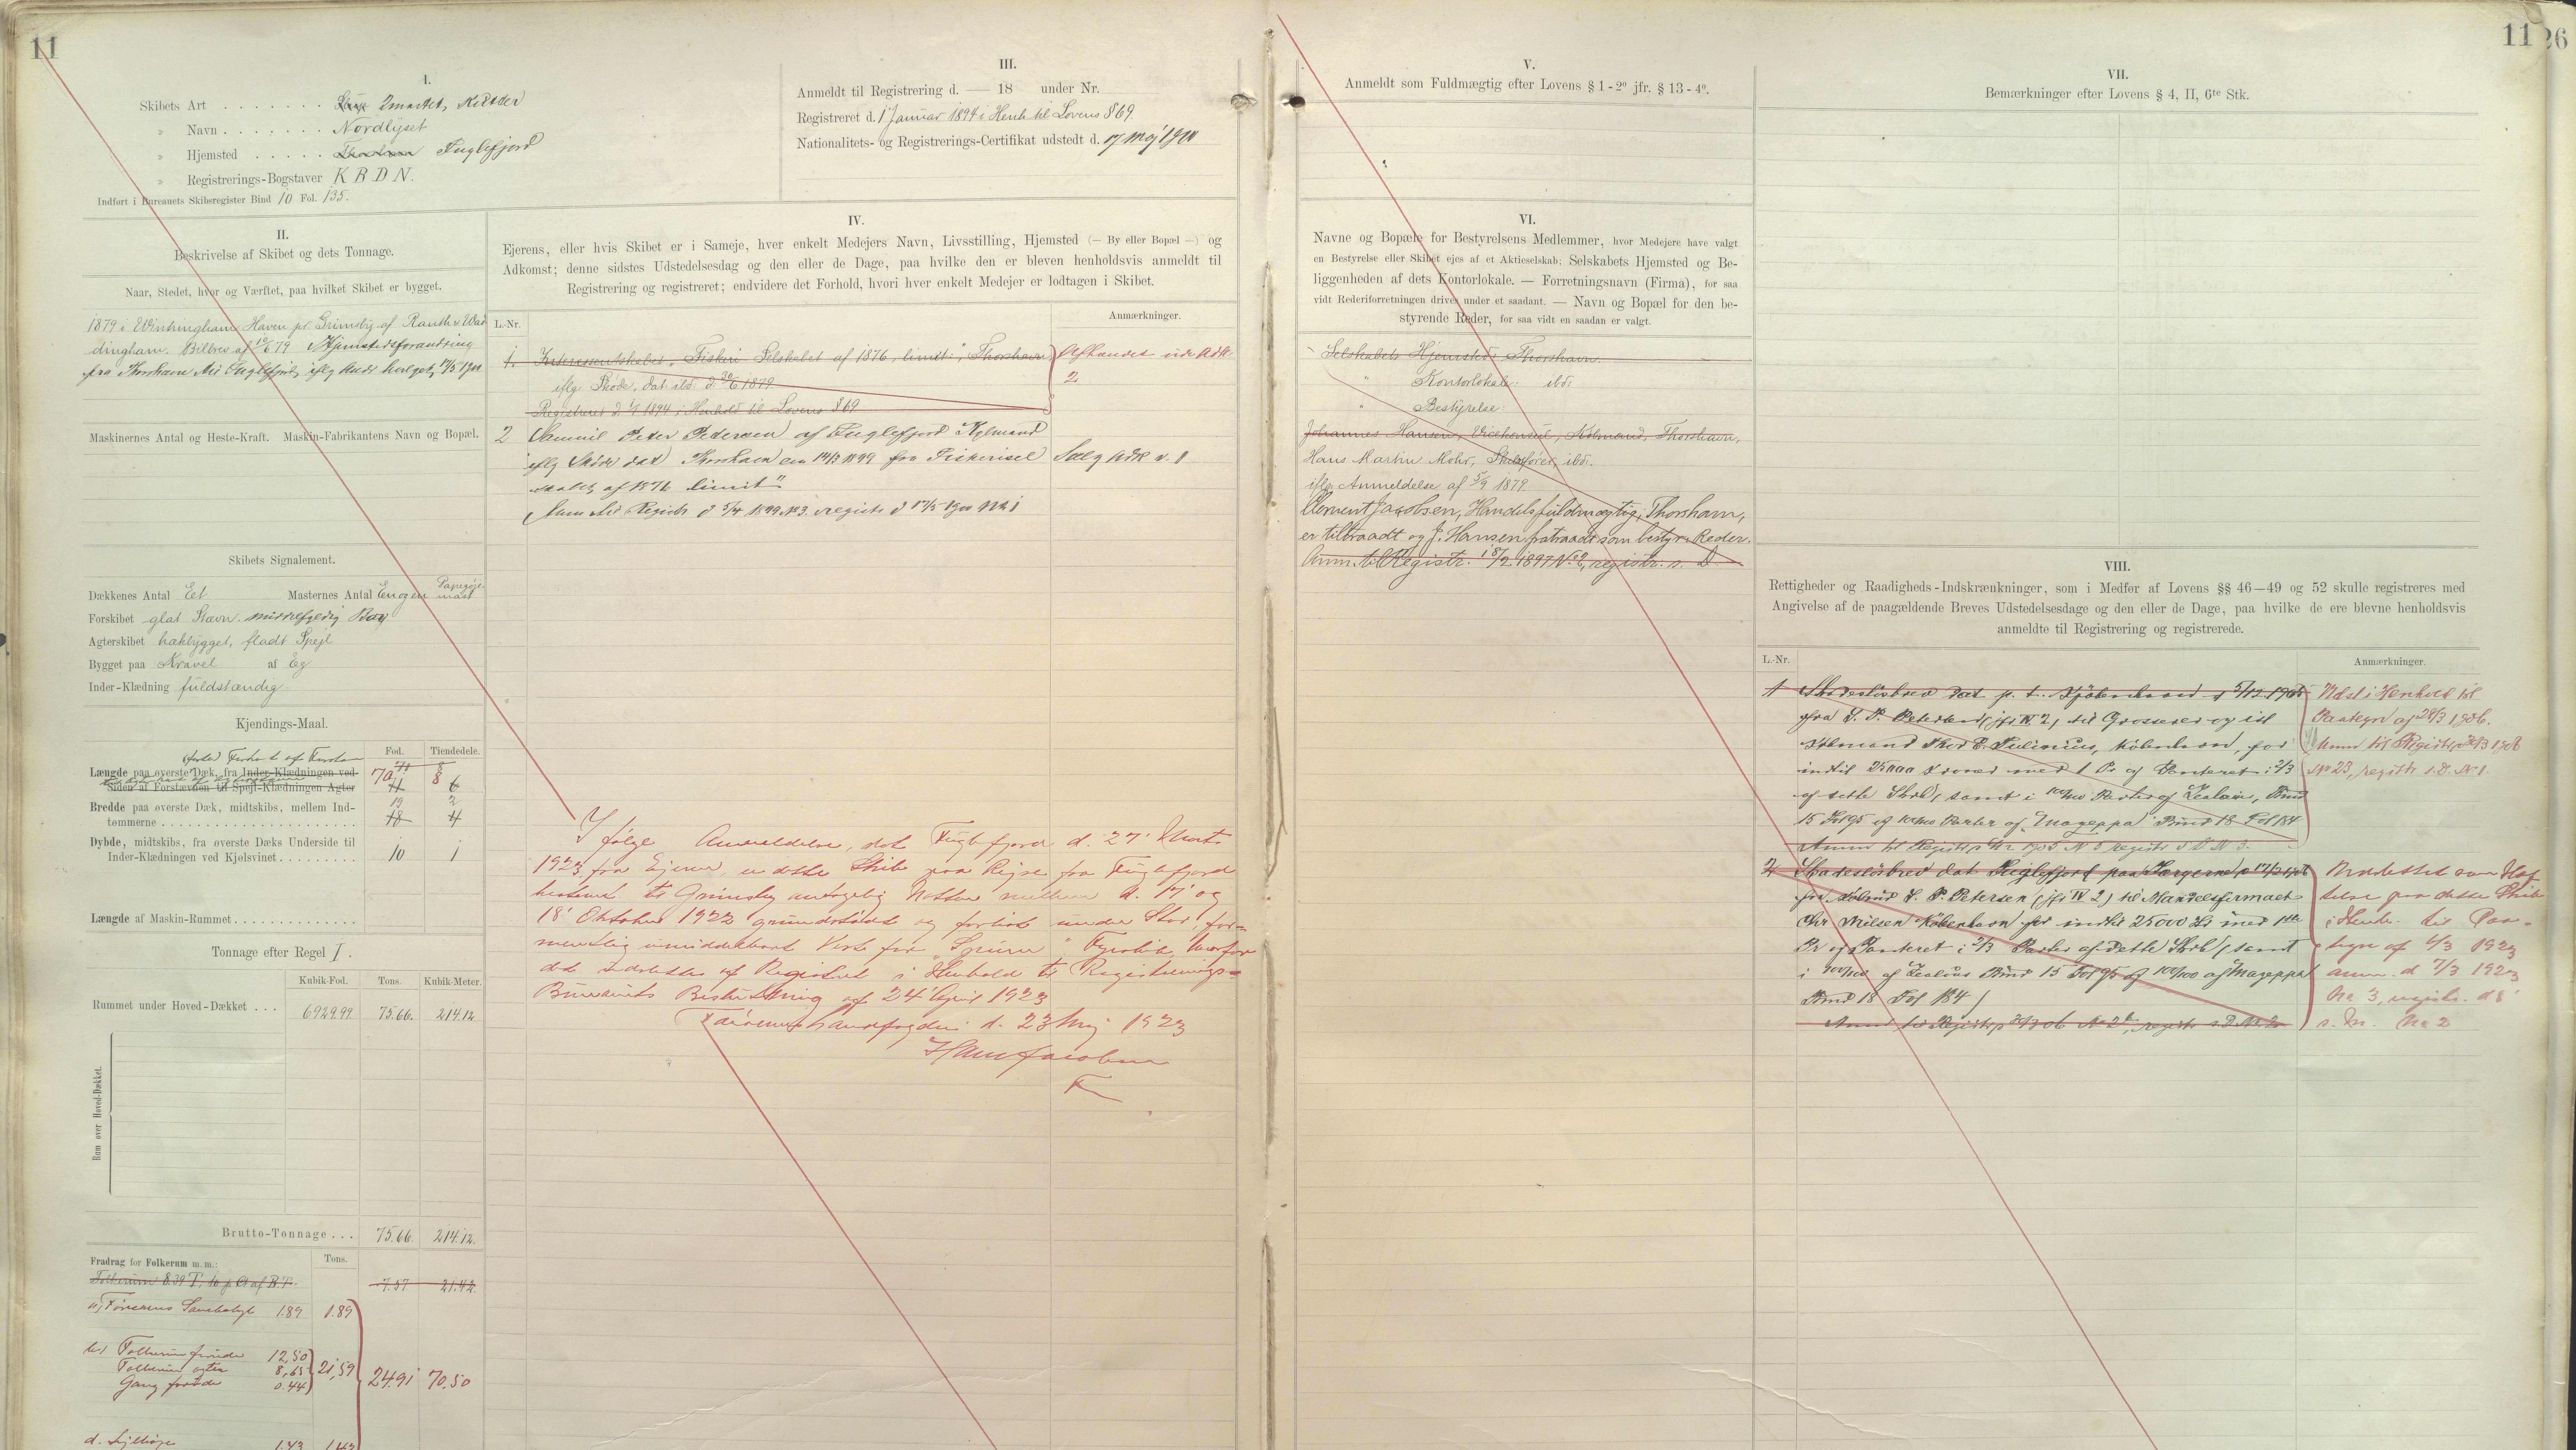 11
I.
Skibets Art . . . . . . . Slup 2mastet, Kutter
» Navn . . . . . . Nordlyset
» Hjemsted . . . . . Thorshavn Fuglefjord
» Registrerings-Bogstaver K B D N.
Indført i Bureauets Skibsregister Bind 10 Fol. 135.
III.
Anmeldt til Registrering d. — 18 under Nr.
Registreret d. 1 Januar 1894 i Henh til Lovens § 69.
Nationalitets- og Registrerings-Certifikat udstedt d. 17 Maj
II.
Beskrivelse af Skibet og dets Tonnage.
Naar, Stedet, hvor og Værftet, paa hvilket Skibet er bygget.
1879 i Wintringham Haven pr. Grimsby af
dingham. Bilbrev af 79 Hjemstedsforandring
fra Thorshavn til Fuglefjord, iflg
Maskinernes Antal og Heste-Kraft. Maskin-Fabrikantens Navn og Bopæl.
Skibets Signalement.
Dækkenes Antal Eet Masternes Antal Een og en Papegøje-
mast
Forskibet glat Stævn. middelfyldig Bov
Agterskibet hækbygget, fladt Spejl
Bygget paa Kravel af Eg
Inder-Klædning fuldstændig
Kjendings-Maal.
Fod. Tiendedele.
Længde paa øverste Dæk, fra Inder-Klædningen ved
Siden af Forstævnen til Spejl-Klædningen Agter
70 8
Bredde paa øverste Dæk, midtskibs, mellem Ind-
tømmerne . . . . . . . . 18 4
19 2
Dybde, midtskibs, fra øverste Dæks Underside til
Inder-Klædningen ved Kjølsvinet . . . . . . . . . 10 1
Længde af Maskin-Rummet . . . . . . . . . . . . .
Tonnage efter Regel I.
Kubik-Fod. Tons. Kubik-Meter.
Rummet under Hoved-Dækket . . . 6929.99 75.66. 214.12
Rum over Hoved-Dækket.
Brutto-Tonnage . . . 75.66. 214.12.
Fradrag for Folkerum m. m.: Tons.
Folkerum 8.39 T, 10 p Ct af B.T. 7.57 21.42.
a, Førerens Lukaf 1.89 1.89
b, Folkerum forude 12,50
Folkerum agter 8,65 21,59
Gang forude 0.44
24.91 70.50
d. 1.43 1.43
IV.
Ejerens, eller hvis Skibet er i Sameje, hver enkelt Medejers Navn, Livsstilling, Hjemsted (— By eller Bopæl —) og
Adkomst; denne sidstes Udstedelsesdag og den eller de Dage, paa hvilke den er bleven henholdsvis anmeldt til
Registrering og registreret; endvidere det Forhold, hvori hver enkelt Medejer er lodtagen i Skibet.
L.-Nr. Anmærkninger.
1. Interessentskabet, "Fiskeri Selskabet af 1876, limit:", Thorshavn
iflg. Skøde, dat. ibd. d. 1879
Registreret d. 1/1 1894 i Henhold til Lovens § 69
Afhændet
2.
2 Samuel Peter Petersen af Fuglefjord Købmand
iflg Skøde dat Thorshavn den 14/3 1899 fra Fiskerisel
skabet af 1876 limit"
Anm til Registr d 5/4 1899 No 3. registr d 17/5 No 1
Ifølge Anmeldelse, dat Fuglefjord d. 27 Marts
1923 fra Ejeren, er dette Skib paa Rejse fra Fuglefjord
bestemt til Grimsby antagelig Natten mellem d. 17 og
18 Oktober 1922 grundstødt og forlist under Storm, for-
mentlig umiddelbart Vest for "Spurn" Fyrskib, hvorfor
det udslettes af Registret i Henhold til Registrerings-
Bureauets Beslutning af 24 April 1923
d. 23 Maj 1923
V.
Anmeldt som Fuldmægtig efter Lovens § 1-2° jfr. § 13-4°.
VI.
Navne og Bopæle for Bestyrelsens Medlemmer, hvor Medejere have valgt
en Bestyrelse eller Skibet ejes af et Aktieselskab: Selskabets Hjemsted og Be-
liggenheden af dets Kontorlokale. — Forretningsnavn (Firma), for saa
vidt Rederiforretningen drives under et saadant. — Navn og Bopæl for den be-
styrende Reder, for saa vidt en saadan er valgt.
Selskabets Hjemsted: Thorshavn
" Kontorlokale: ibd.
" Bestyrelse:
Johannes Hansen, Vicekonsul, Købmand, Thorshavn,
Hans Martin Mohr, Skibsfører, ibd.
iflg Anmeldelse af 5/9 1879
Clement Jacobsen, Handelsfuldmægtig, Thorshavn,
er tiltraadt og J. Hansen fratraadt som bestyr. Reder.
Anm. til Registr. 18/2 1897 No 2, registr. s. D.
11
26
VII.
Bemærkninger efter Lovens § 4, II, 6te Stk.
VIII.
Rettigheder og Raadigheds-Indskrænkninger, som i Medfør af Lovens §§ 46—49 og 52 skulle registreres med
Angivelse af de paagældende Breves Udstedelsesdage og den eller de Dage, paa hvilke de ere blevne henholdsvis
anmeldte til Registrering og registrerede.
L.-Nr. Anmærkninger.
1 Skadesløsbrev dat p. t. Kjøbenhavn d 5/12 1905
fra S. P. Petersen (jfr IV 2) til Grosserer og
Købmand Thor E. Tulinius, København, for
indtil 25000 Kroner med 1 Pr og Panteret i 2/3
af dette Skib, samt i 100/100 Parter af Zealous, Bind
15 Fol 95 og 100/100 Parter af "Mazeppa" Bind 18 Fol 184
Udsl i Henhold til
Paategn af 28/3 1906.
Anm til Registr 1906
No 23, registr s. D. No 1.
2 Skadesløsbrev dat Fuglefjord paa Færøerne
fra Købmd S. P. Petersen (jfr IV 2) til Handelsfirmaet
Chr Nielsen København for indtil 25000 Kr med 1ste
Pr og Panteret i 2/3 Parter af dette Skib (samt
i 100/100 af Zealous Bind 15 Fol 95 og 100/100 af Mazeppa
Bind 18 Fol 184)
Udslettet som Hæf
telse paa dette Skib
i Henh. til Paa-
tegn af 6/3 1923
anm. d 7/3 1923
No 3, registr. d
s. D. No 2